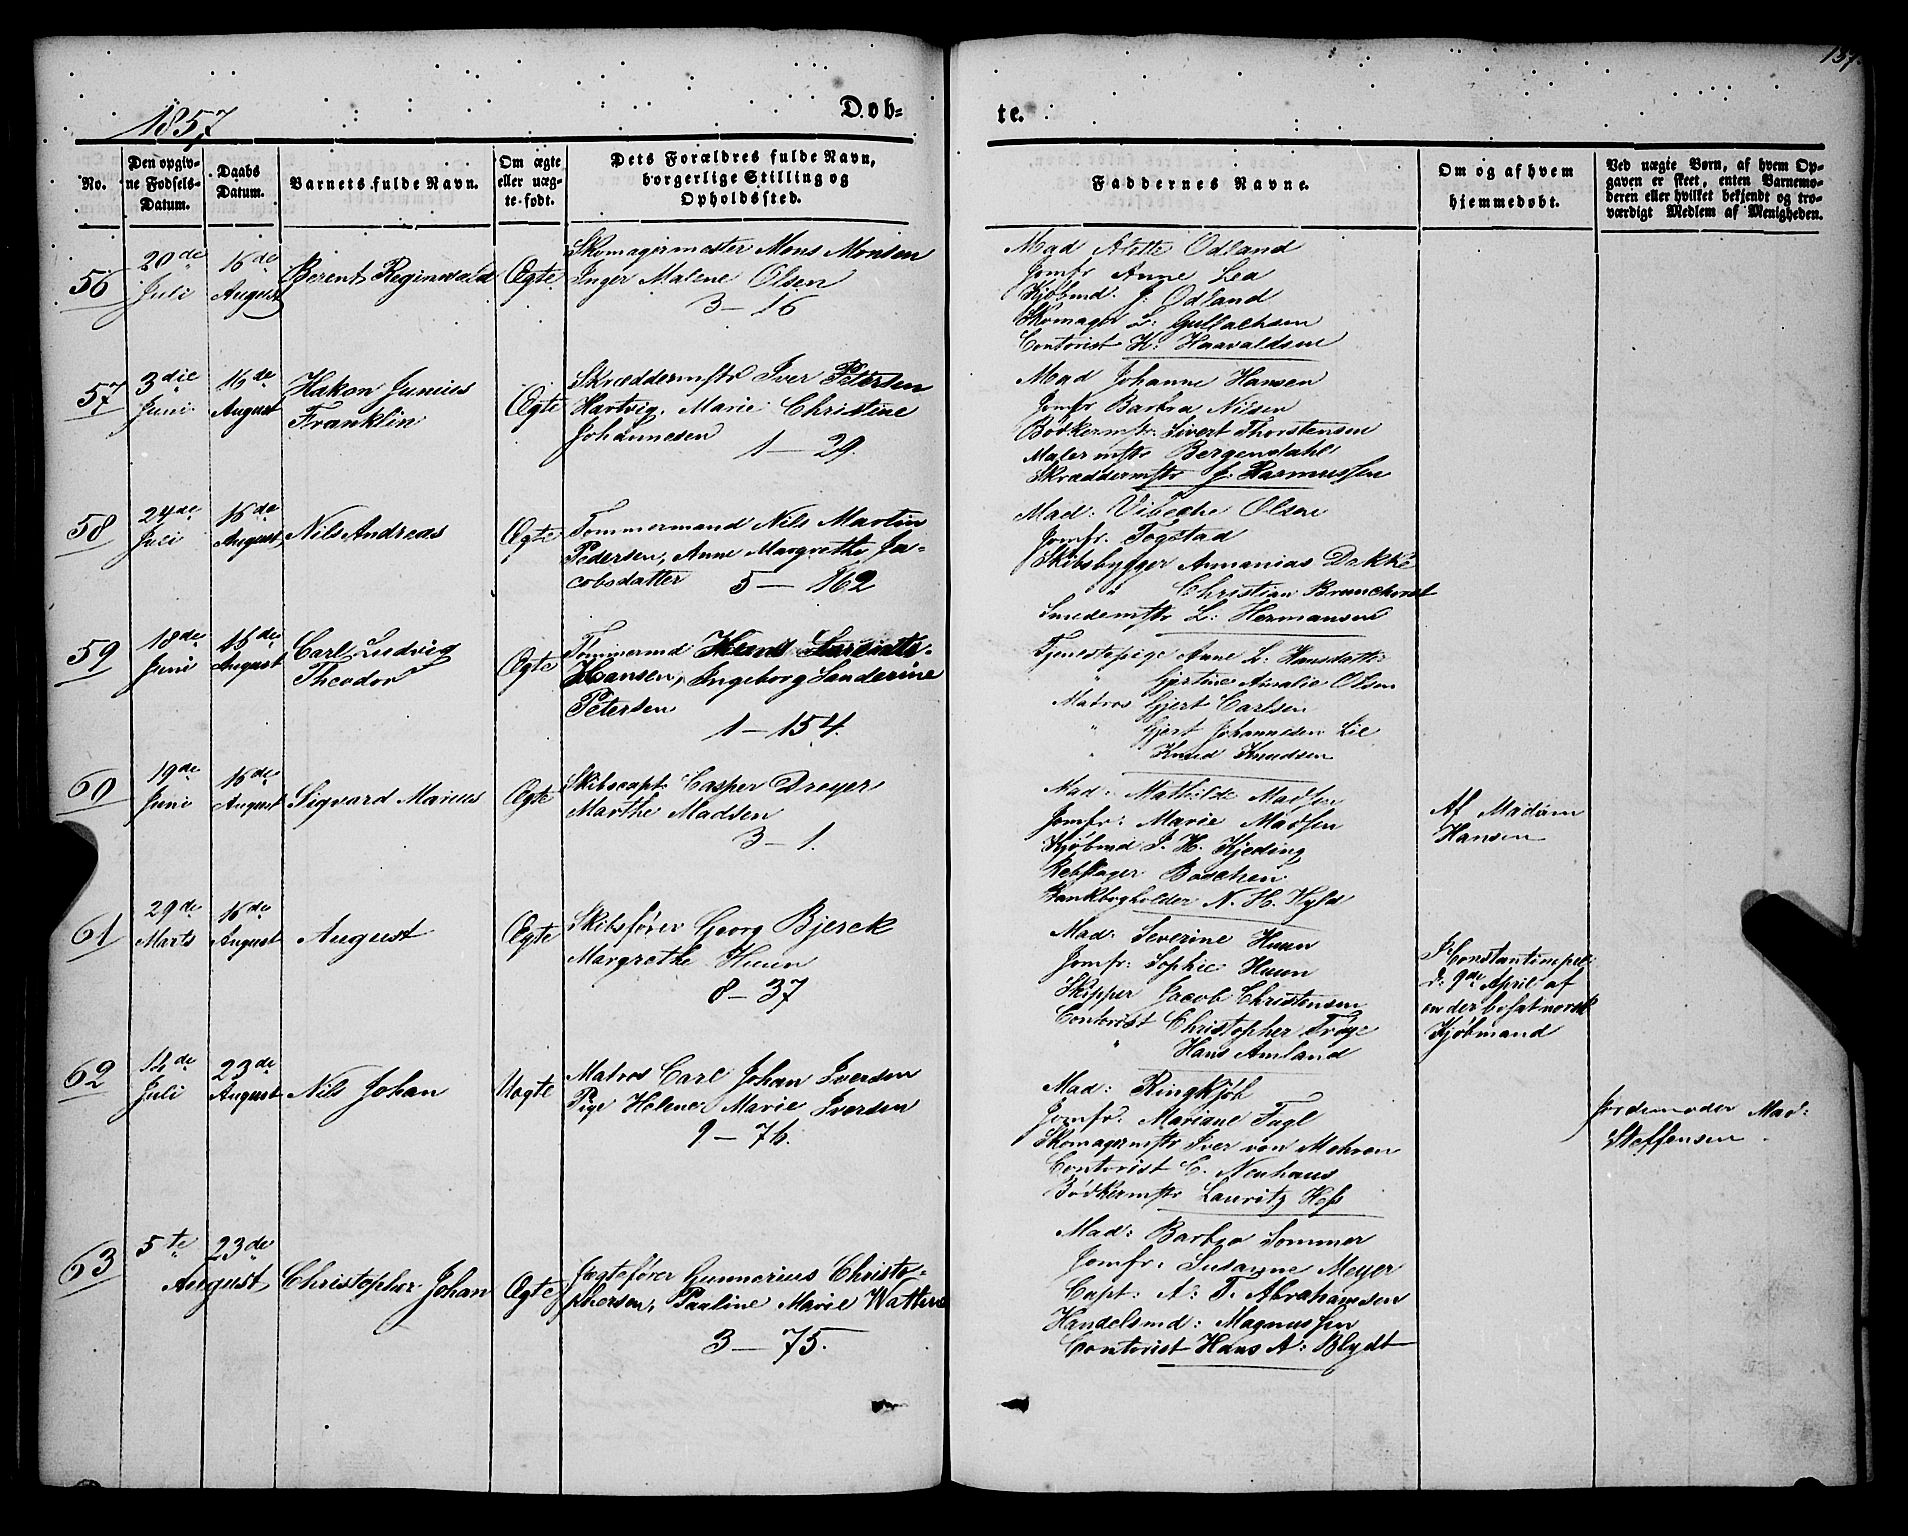 187.
1857
Døb-
te.
No.
Den opgiv-
ne Fødsels-
Datum.
Daabs
Datum.
Barnets fulde Navn.
Om ægte
eller uæg-
te-født.
Dets Forældres fulde Navn,
borgerlige Stilling og
Opholdssted.
Faddernes Navne.
Om og af hvem
hjemmedøbt.
Ved uægte Børn, af hvem Op-
gaven er skeet, enten Barnemo-
deren eller hvilket bekjendt og tro-
værdigt Medlem af Menigheden.
56
20de
Juli
16de
August
Berent Reginwald
Ægte
Skomagermester Mons Monsen
Inger Malene Olsen
3 — 16
Mad Odland
Jomfr Anne Lea
Kjøbmd. J. Odland
Skomager L: Gullachsen
Contorist K: Haavaldsen
57
3die
Juni
16de
August
Hakon Junius
Franklin
Ægte
Skræddermstr Iver Petersen
Hartvig, Marie Christine
Johannesen
1 — 29.
Mad Johanne Hansen
Jomfr Barbra Nilsen
Bødkermstr: Sivert Thorstensen
Malermstr Bergendahl
Skræddermstr J. Rasmussen
58
24de
Juli
16de
August
Nils Andreas
Ægte
Tømmermand Nils Martin
Pedersen, Anne Margrethe Ja-
cobsdatter 5 — 162
Mad: Vibeche Olsen
Jomfr. Fogstad
Skibsbygger Annanias Dekke
" Christian Brunchorst
Smedemstr L: Hermansen
59
18de
Juni
16de
August
Carl Ludvig
Theodor
Ægte
Tømmermd
Hansen, Ingeborg Sanderine
Petersen
1 — 154.
Tjenestepige Anne L: Hansdatter
" Gjertine Amalie Olsen
Matros Gjert Carlsen
" Gjert Johannesen Lie
" Knud Knudsen
60
19de
Juni
16de
August
Sigvard Marius
Ægte
Skibscapt: Casper Dreyer
Marthe Madsen
3 — 1.
Mad: Mathilde Madsen
Jomfr: Marie Madsen
Kjøbmd J. H. Kjeding
Rebslager Boschen
Bankbogholder N. H. Hyld
Af Madam
Hansen
61
29de
Marts
16de
August
August
Ægte
Skibsfører Georg Bjerck
Margrethe Huun
8 — 37
Mad: Severine Huun
Jomfr: Sophie Huun
Skipper Jacob Christensen
Contorist Christopher Troye
" Hans Amland
I Constantinopel
d. 9de April af
en der bosat norsk
Kjøbmand
62
14de
Juli
23de
August
Nils Johan
Uægte
Matros Carl Johan Iversen
Pige Helene Marie Iversen
9 — 76.
Mad: Ringkjøb
Jomfr. Mariane Fugl
Skomagermstr Iver von Mehren
Contorist C. Neuhaus
Bødkermstr Lauritz Hess
Jordemoder Mad:
Steffensen
63
5te
23de
August
Christopher Johan
Ægte
Jægtefører Gunnerius Christo-
phersen, Pauline Marie Watterne
3 — 75.
Mad: Barbra Sommer
Jomfr: Susanne Meyer
Capt: A: T. Abrahamsen
Handelsmd: Magnussen
Contorist Hans A: Blydt